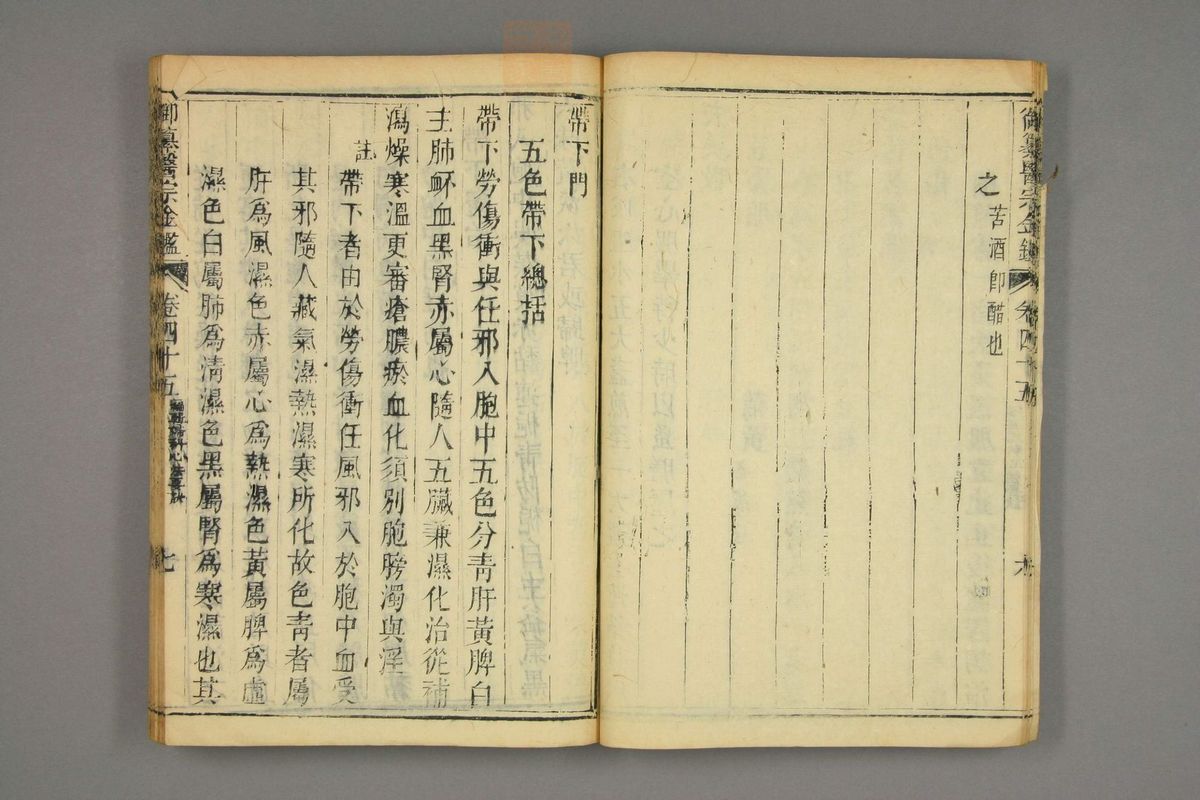 御纂醫宗金鑑 卷四十五 六
之 苦酒卽醋也
帶下門
五色帶下總括
帶下勞傷衝與任邪入胞中五色分青肝黃脾白
主肺衃血黑腎赤屬心隨人五臟兼濕化治從補
瀉燥寒溫更審瘡膿瘀血化須別胞膀濁與淫
註帶下者由於勞傷衝任風邪入於胞中血受
其邪隨人藏氣濕熱濕寒所化故色青者屬
肝為風濕色赤屬心為熱濕色黃屬脾為虛
濕色白屬肺為清濕色黑屬腎為寒濕也其
御纂醫宗金鑑 卷四十五 編輯婦科心法要訣 七